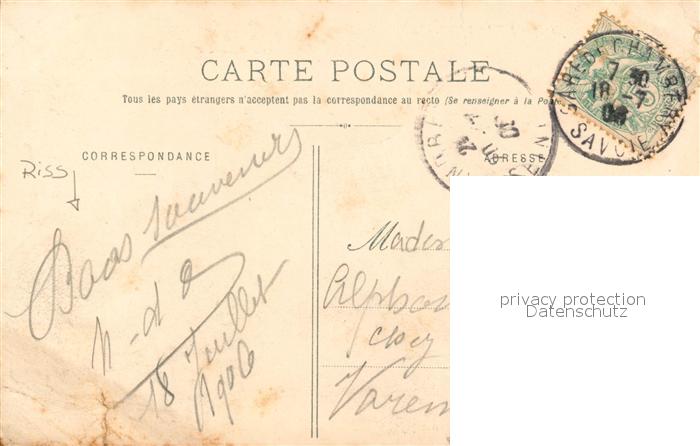 CARTE POSTALE
Tous les pays étrangers n'acceptent pas la correspondance au recto (Se renseigner à la Poste
CORRESPONDANCE
ADRESSE
RISS
Bons souvenirs
18 Juillet
1906
Madem
Alphon
chez
Varen
GARE DE CHAMBERY
7 30
18 - 7
06
SAVOIE
privacy protection
Datenschutz